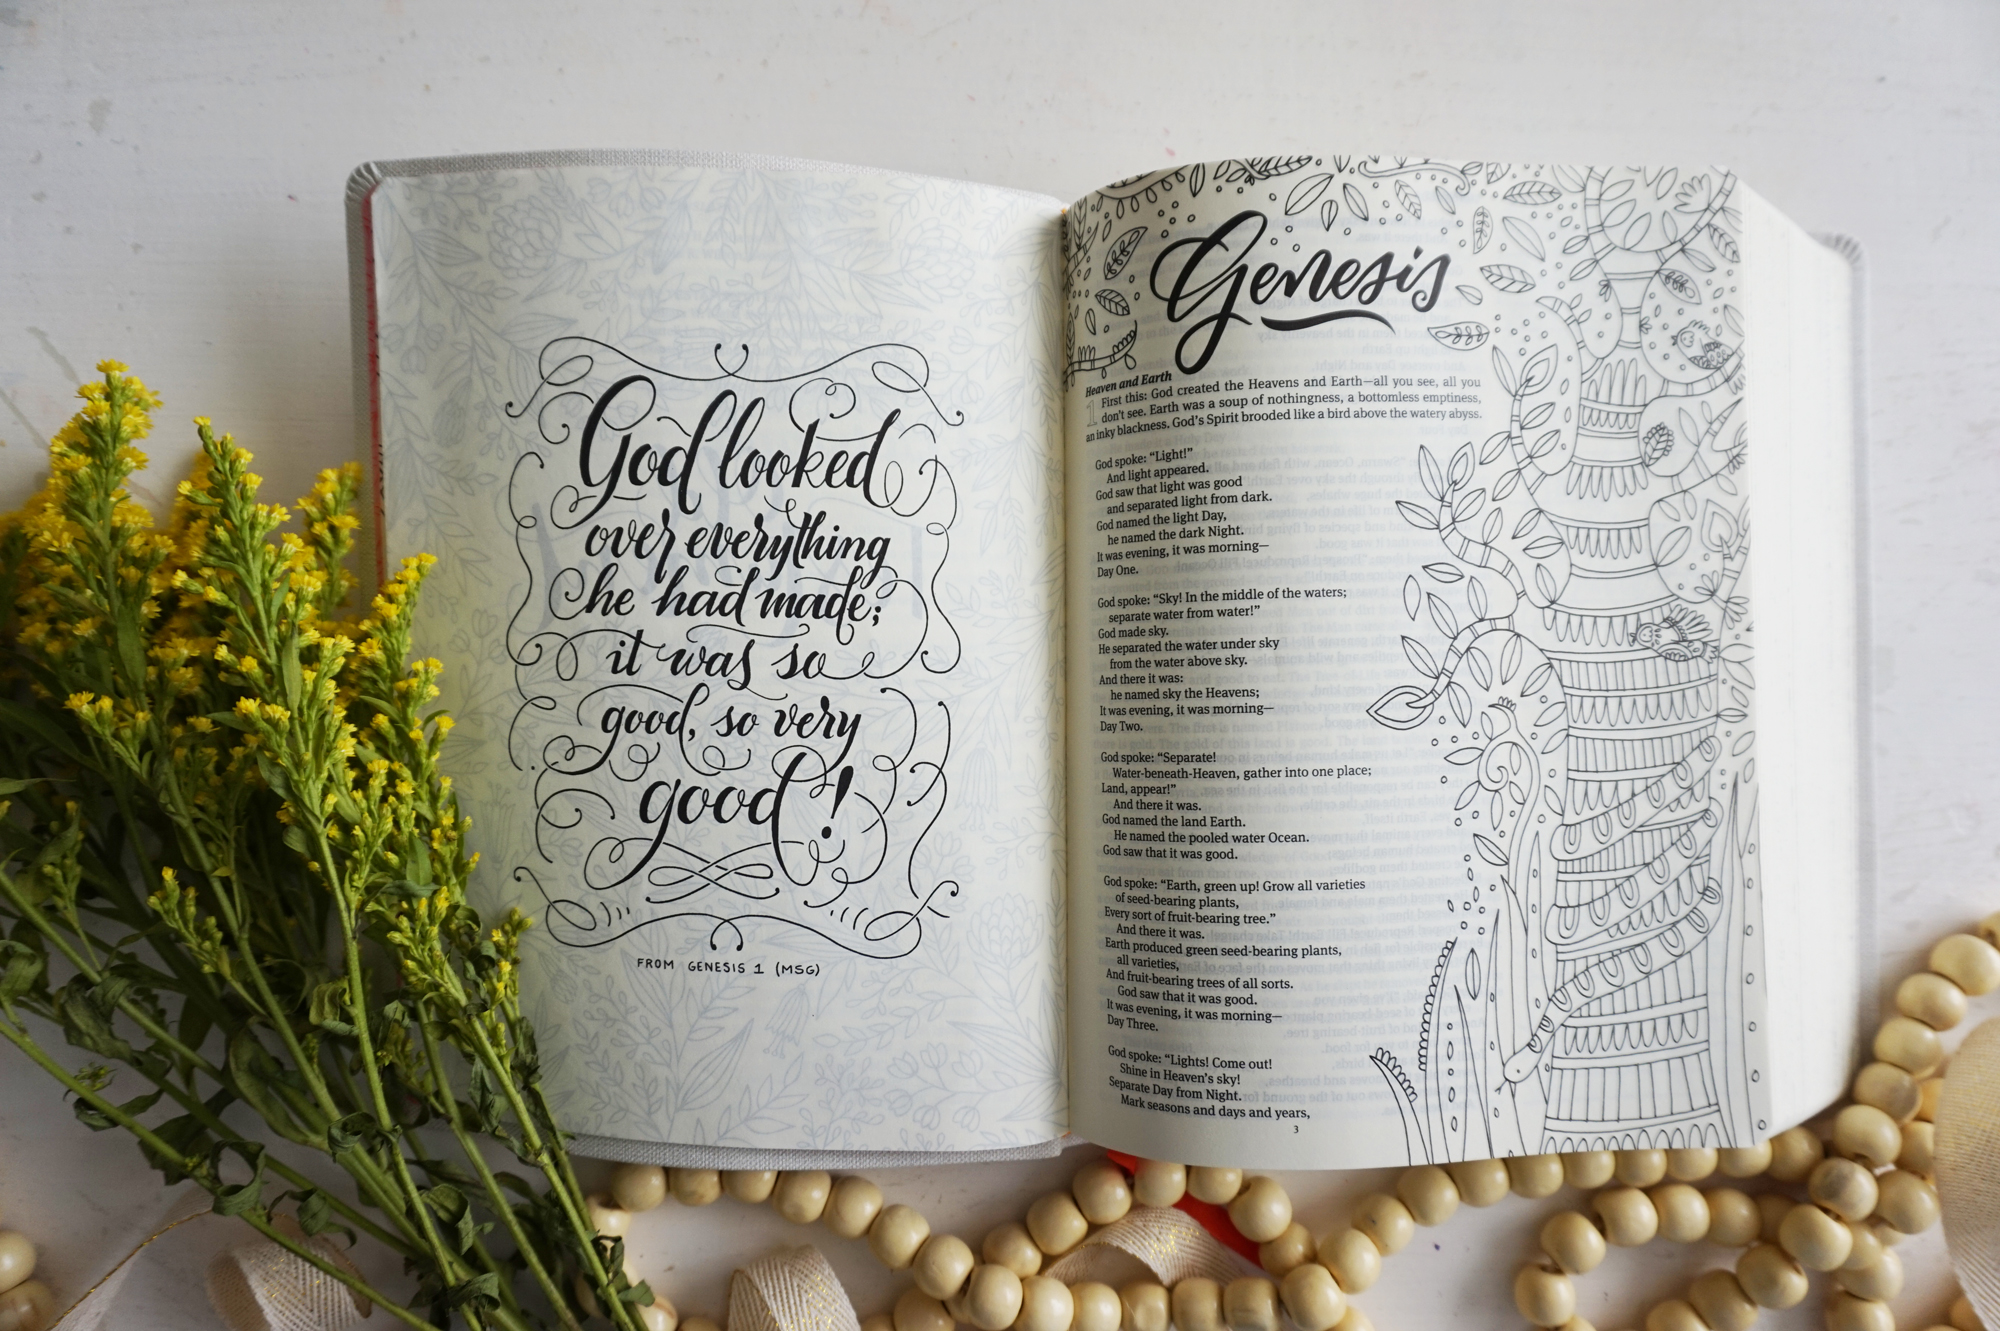 God looked
over everything
he had made;
it was so
good, so very
good!
FROM GENESIS 1 (MSG)
Genesis
Heaven and Earth
1 First this: God created the Heavens and Earth—all you see, all you
don't see. Earth was a soup of nothingness, a bottomless emptiness,
an inky blackness. God's Spirit brooded like a bird above the watery abyss.
God spoke: "Light!"
And light appeared.
God saw that light was good
and separated light from dark.
God named the light Day,
he named the dark Night.
It was evening, it was morning—
Day One.
God spoke: "Sky! In the middle of the waters;
separate water from water!"
God made sky.
He separated the water under sky
from the water above sky.
And there it was:
he named sky the Heavens;
It was evening, it was morning—
Day Two.
God spoke: "Separate!
Water-beneath-Heaven, gather into one place;
Land, appear!"
And there it was.
God named the land Earth.
He named the pooled water Ocean.
God saw that it was good.
God spoke: "Earth, green up! Grow all varieties
of seed-bearing plants,
Every sort of fruit-bearing tree."
And there it was.
Earth produced green seed-bearing plants,
all varieties,
And fruit-bearing trees of all sorts.
God saw that it was good.
It was evening, it was morning—
Day Three.
God spoke: "Lights! Come out!
Shine in Heaven's sky!
Separate Day from Night.
Mark seasons and days and years,
3